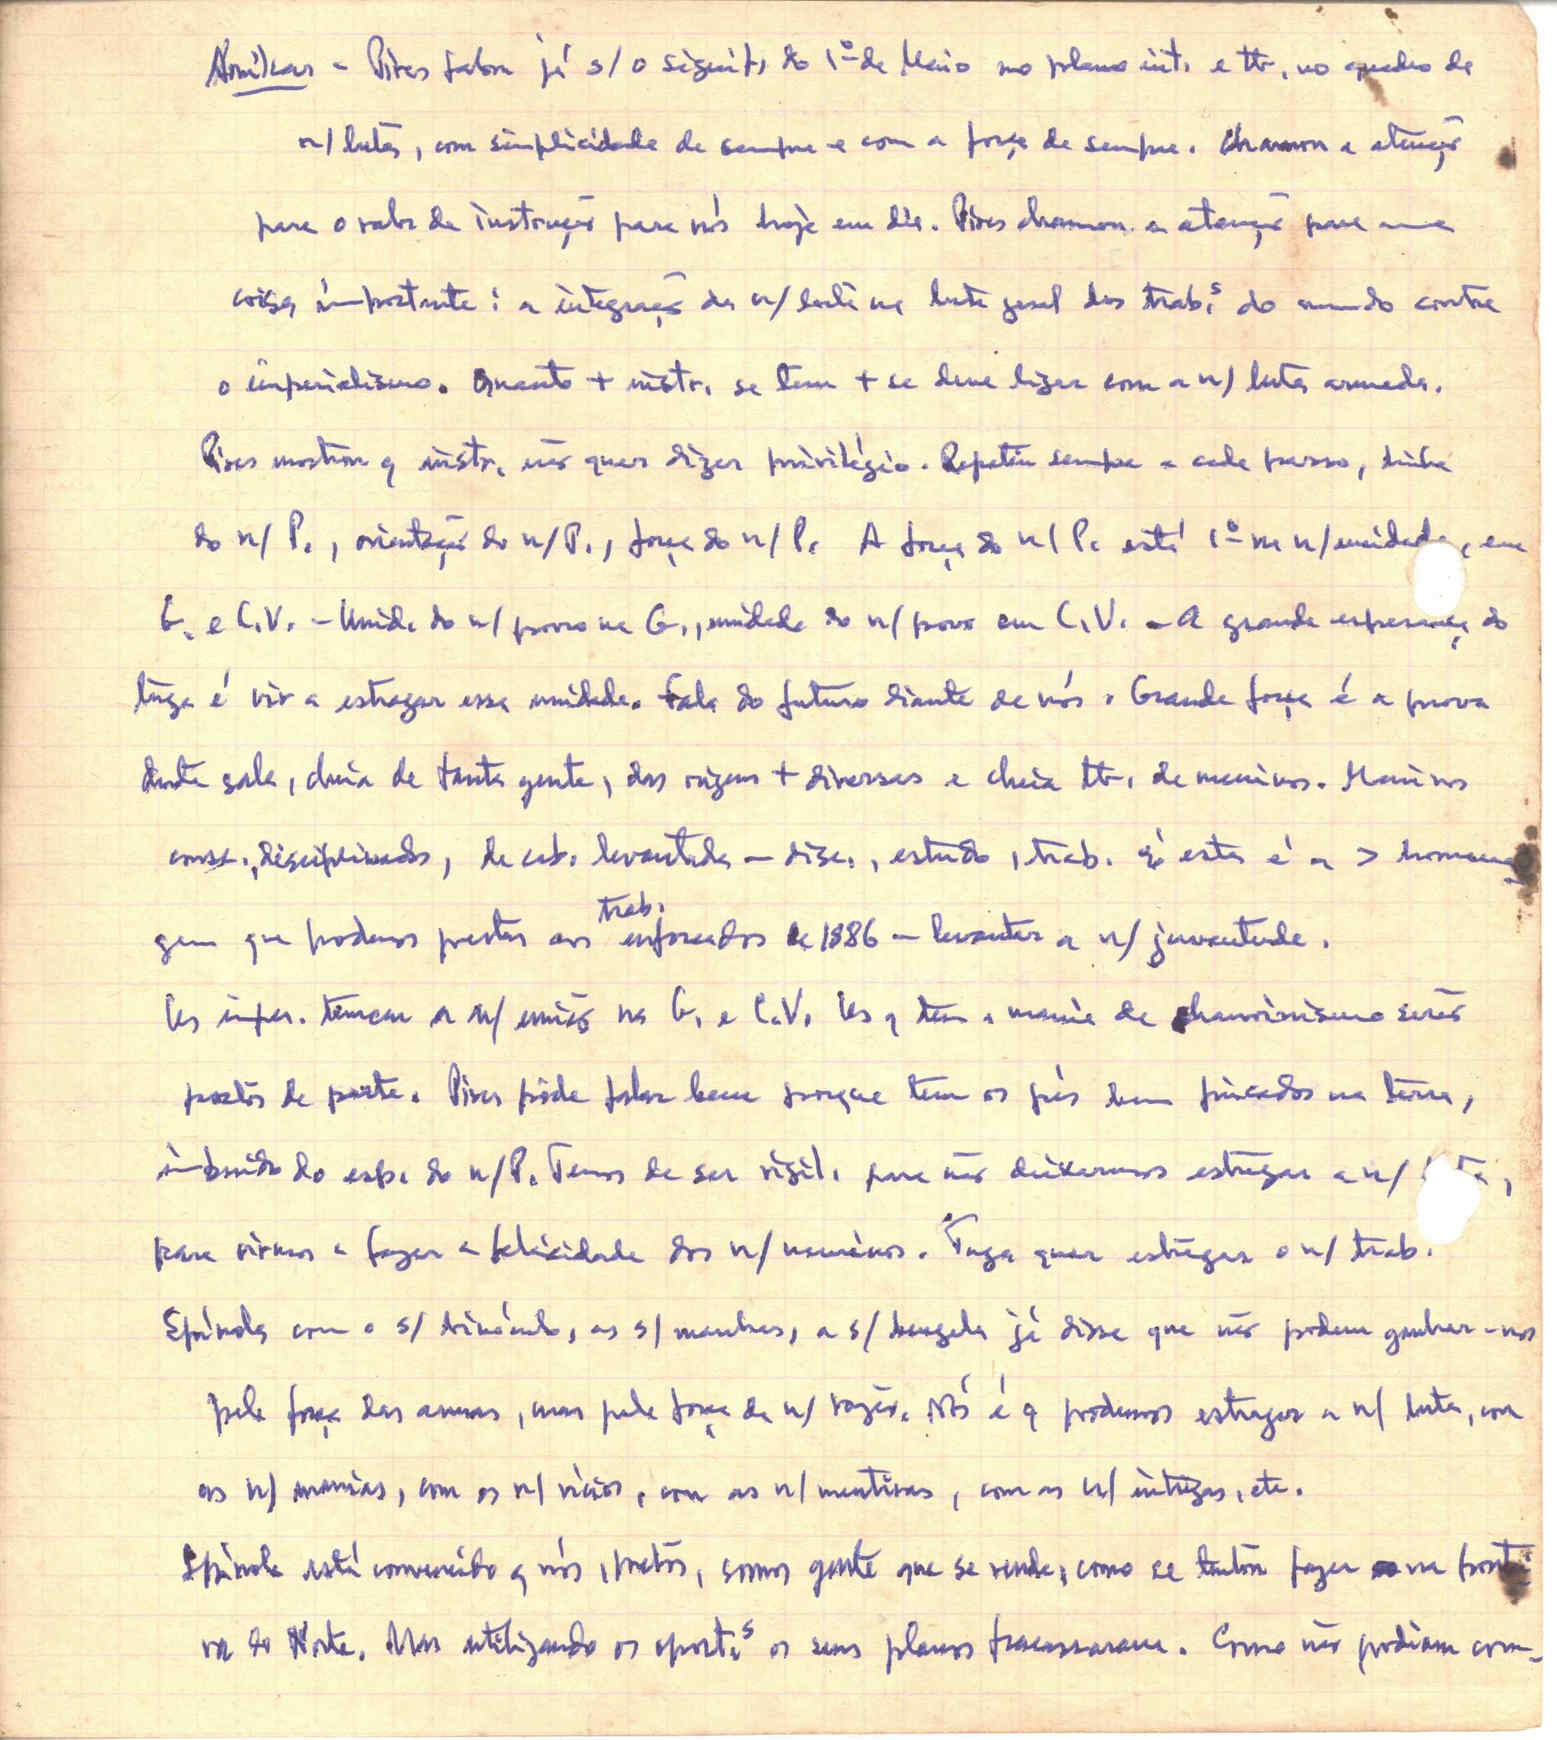 Amílcar - Pires falou já s/ o signif. do 1º de Maio no plano int. e tb., no quadro da
n/ luta, com simplicidade de sempre e com a força de sempre. Chamou a atenção
para o valor da instrução para nós hoje em dia. Pires chamou a atenção para uma
coisa importante: a integração da n/ luta na luta geral dos trab.s do mundo contra
o imperialismo. Quanto + instr. se tem + se deve ligar com a n/ luta armada.
Pires mostrou q instr. não quer dizer privilégio. Repetiu sempre a cada passo, linha
do n/ P., orientação do n/ P., força do n/ P. A força do n/ P. está 1º na n/ unidade, em
G. e C.V. - Unid. do n/ povo na G., unidade do n/ povo em C.V. - A grande esperança do
tuga é vir a estragar essa unidade. Fala do futuro diante de nós. Grande força é a prova
desta sala, cheia de tanta gente, das origens + diversas e cheia tb. de meninos. Meninos
consc., disciplinados, de cab. levantada - disc., estudo, trab. q esta é a > homena
gem que podemos prestar aos trab. enforcados de 1886 - levantar a n/ juventude.
Os imper. temem a n/ união na G. e C.V. Os q têm a mania de chauvinismo serão
postos de parte. Pires pôde falar bem porque tem os pés bem fincados na terra,
imbuído do esp. do n/ P. Temos de ser vigil. para não deixarmos estragar a n/ luta,
para virmos a fazer a felicidade dos n/ meninos. Tuga quer estragar o n/ trab.
Spínola com o s/ binóculo, as s/ manhas, a s/ bengala já disse que não podem ganhar-nos
pela força das armas, mas pela força da n/ razão. Nós é q podemos estragar a n/ luta, com
as n/ manias, com os n/ vícios, com as n/ mentiras, com as n/ intrigas, etc.
Spínola está convencido q nós, pretos, somos gente que se vende, como se tentou fazer na frontei
ra do Norte. Mas utilizando os oport.s os seus planos fracassaram. Como não podiam com-